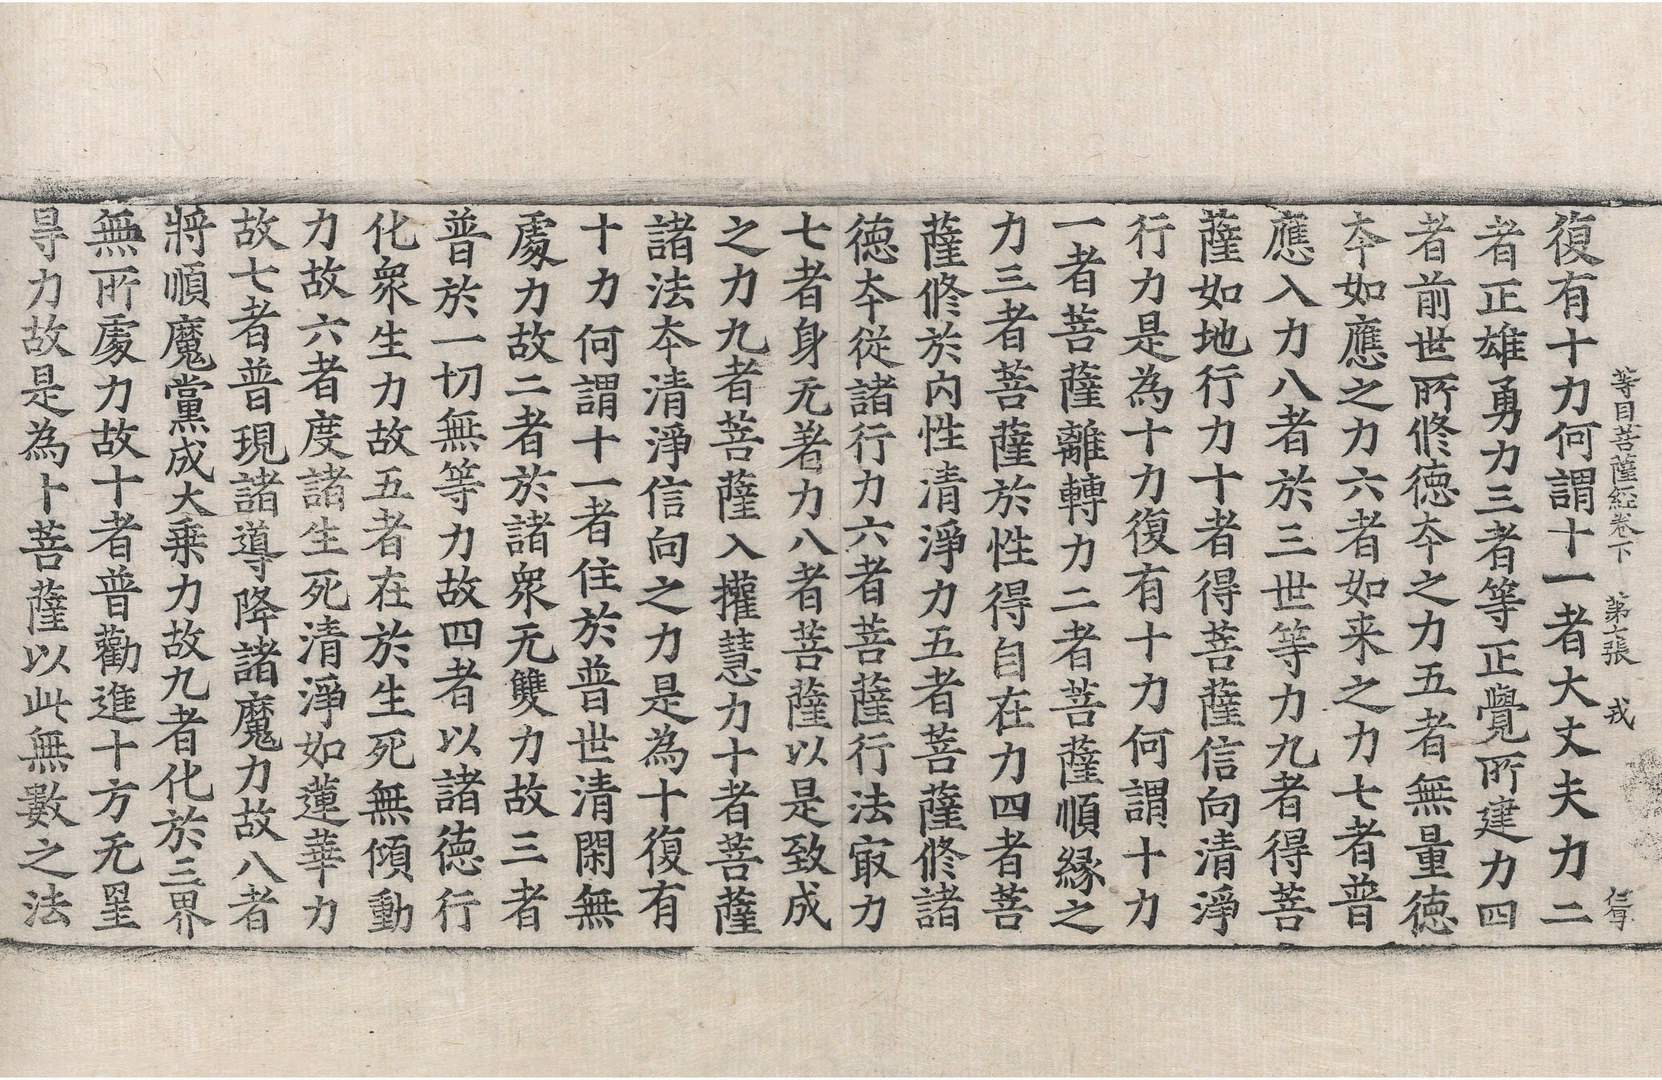 等目菩薩經卷下　第十張　戎
復有十力何謂十一者大丈夫力二
者正雄勇力三者等正覺所建力四
者前世所修德夲之力五者無量德
夲如應之力六者如来之力七者普
應入力八者於三世等力九者得菩
薩如地行力十者得菩薩信向清淨
行力是為十力復有十力何謂十力
一者菩薩離轉力二者菩薩順緣之
力三者菩薩於性得自在力四者菩
薩修於內性清淨力五者菩薩修諸
德夲從諸行力六者菩薩行法㝡力
七者身无著力八者菩薩以是致成
之力九者菩薩入權慧力十者菩薩
諸法夲清淨信向之力是為十復有
十力何謂十一者住於普世清閑無
處力故二者於諸衆无雙力故三者
普於一切無等力故四者以諸德行
化衆生力故五者在於生死無傾動
力故六者度諸生死清淨如蓮華力
故七者普現諸導降諸魔力故八者
將順魔黨成大乗力故九者化於三界
無所處力故十者普勸進十方无罣
㝵力故是為十菩薩以此無數之法